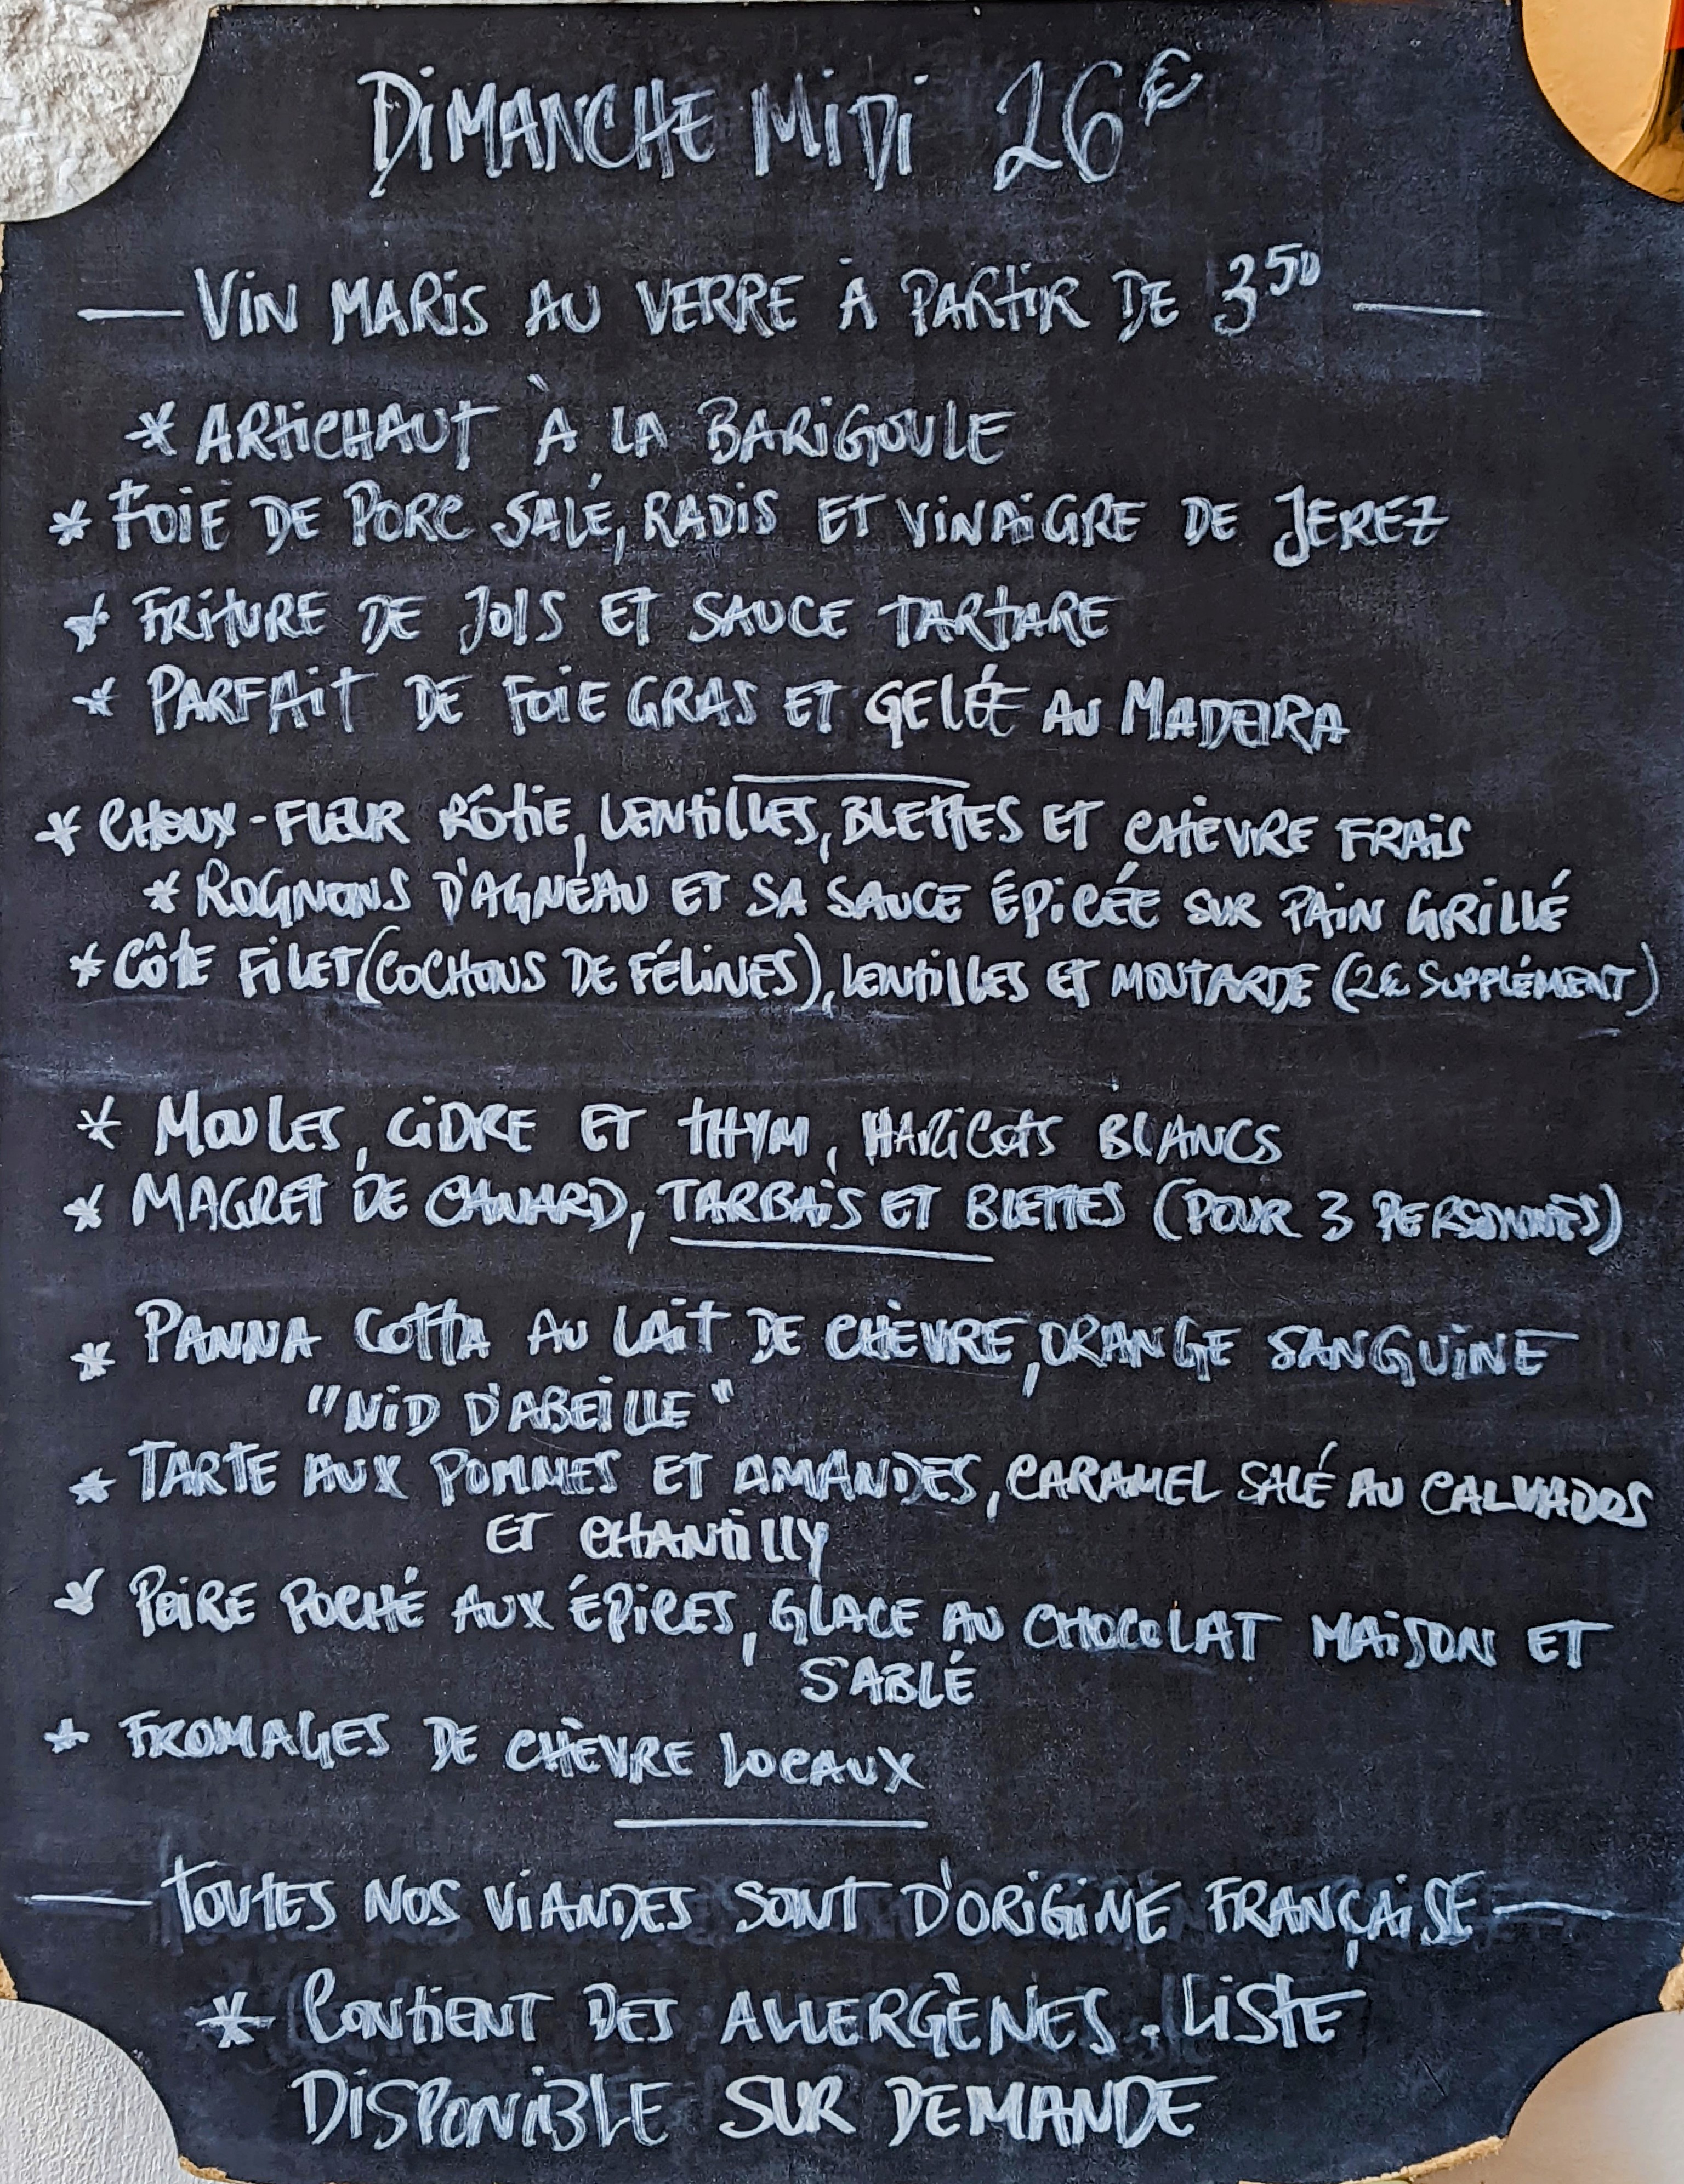 DIMANCHE MIDI 26€
— VIN MARIS AU VERRE À PARTIR DE 3⁵⁰ —
* ARTICHAUT À LA BARIGOULE
* FOIE DE PORC SALÉ, RADIS ET VINAIGRE DE JEREZ
* FRITURE DE JOLS ET SAUCE TARTARE
* PARFAIT DE FOIE GRAS ET GELÉE AU MADEIRA
* CHOUX-FLEUR RÔTIE, LENTILLES, BLETTES ET CHÈVRE FRAIS
* ROGNONS D'AGNEAU ET SA SAUCE ÉPICÉE SUR PAIN GRILLÉ
* CÔTE FILET (COCHONS DE FÉLINES), LENTILLES ET MOUTARDE (2€ SUPPLÉMENT)
* MOULES, CIDRE ET THYM, HARICOTS BLANCS
* MAGRET DE CANARD, TARBAIS ET BLETTES (POUR 3 PERSONNES)
* PANNA COTTA AU LAIT DE CHÈVRE, ORANGE SANGUINE
"NID D'ABEILLE"
* TARTE AUX POMMES ET AMANDES, CARAMEL SALÉ AU CALVADOS
ET CHANTILLY
* POIRE POCHÉ AUX ÉPICES, GLACE AU CHOCOLAT MAISON ET
SABLÉ
* FROMAGES DE CHÈVRE LOCAUX
— TOUTES NOS VIANDES SONT D'ORIGINE FRANÇAISE —
* CONTIENT DES ALLERGÈNES. LISTE
DISPONIBLE SUR DEMANDE